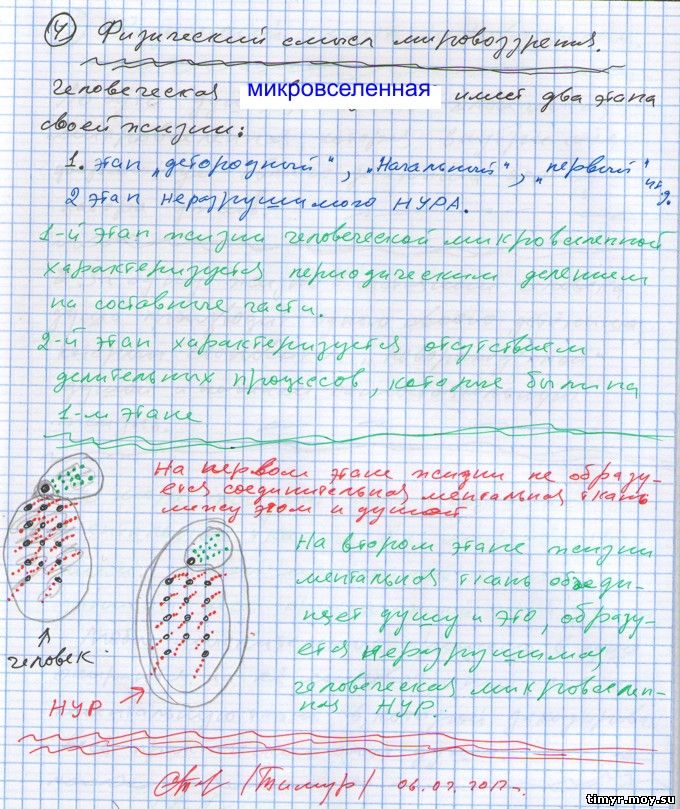 4 Физический смысл мировоззрения.
Человеческая микровселенная имеет два этапа
своей жизни:
1. этап „детородный“, „Начальный“, „первый“ и т.д.
2 этап неразрушимого НУРА.
1-й этап жизни человеческой микровселенной
характеризуется периодическим делением
на составные части.
2-й этап характеризуется отсутствием
делительных процессов, которые были на
1-м этапе
На первом этапе жизни не образу-
ется соединительная ментальная ткань
между эгом и душой
На втором этапе жизни
ментальная ткань объеди-
няет душу и эго, образу-
ется неразрушимая
человеческая микровселен-
ная НУР.
человек
НУР
/Тимур/ 06.02.2012г.
timyr.moy.su